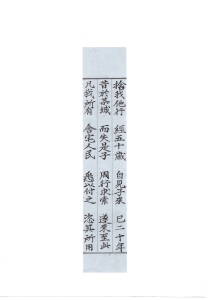 捨我他行　經五十歳　自見子来　已二十年
昔於某城　而失是子　周行求索　遂来至此
凡我所有　舎宅人民　悉以付之　恣其所用